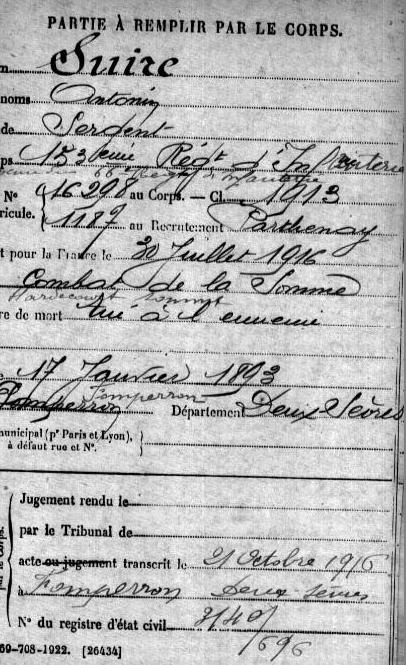 PARTIE À REMPLIR PAR LE CORPS.
m Suire
noms Antonin
de Sergent
ps 153 eme Régt d'Infanterie
N° 16298 au Corps. — Cl. 1913
ricule. 1189 au Recrutement Parthenay
t pour la France le 30 Juillet 1916
Combat de la Somme
Hardecourt Somme
re de mort tué à l'ennemi
e 17 Janvier 1893
Fomperron
Fomperron Département Deux Sèvres
municipal (pr Paris et Lyon),
à défaut rue et N°.
Jugement rendu le
par le Tribunal de
acte ou jugement transcrit le 21 Octobre 1916
à Fomperron Deux Sèvres
N° du registre d'état civil
/696
69-708-1922. [26434]